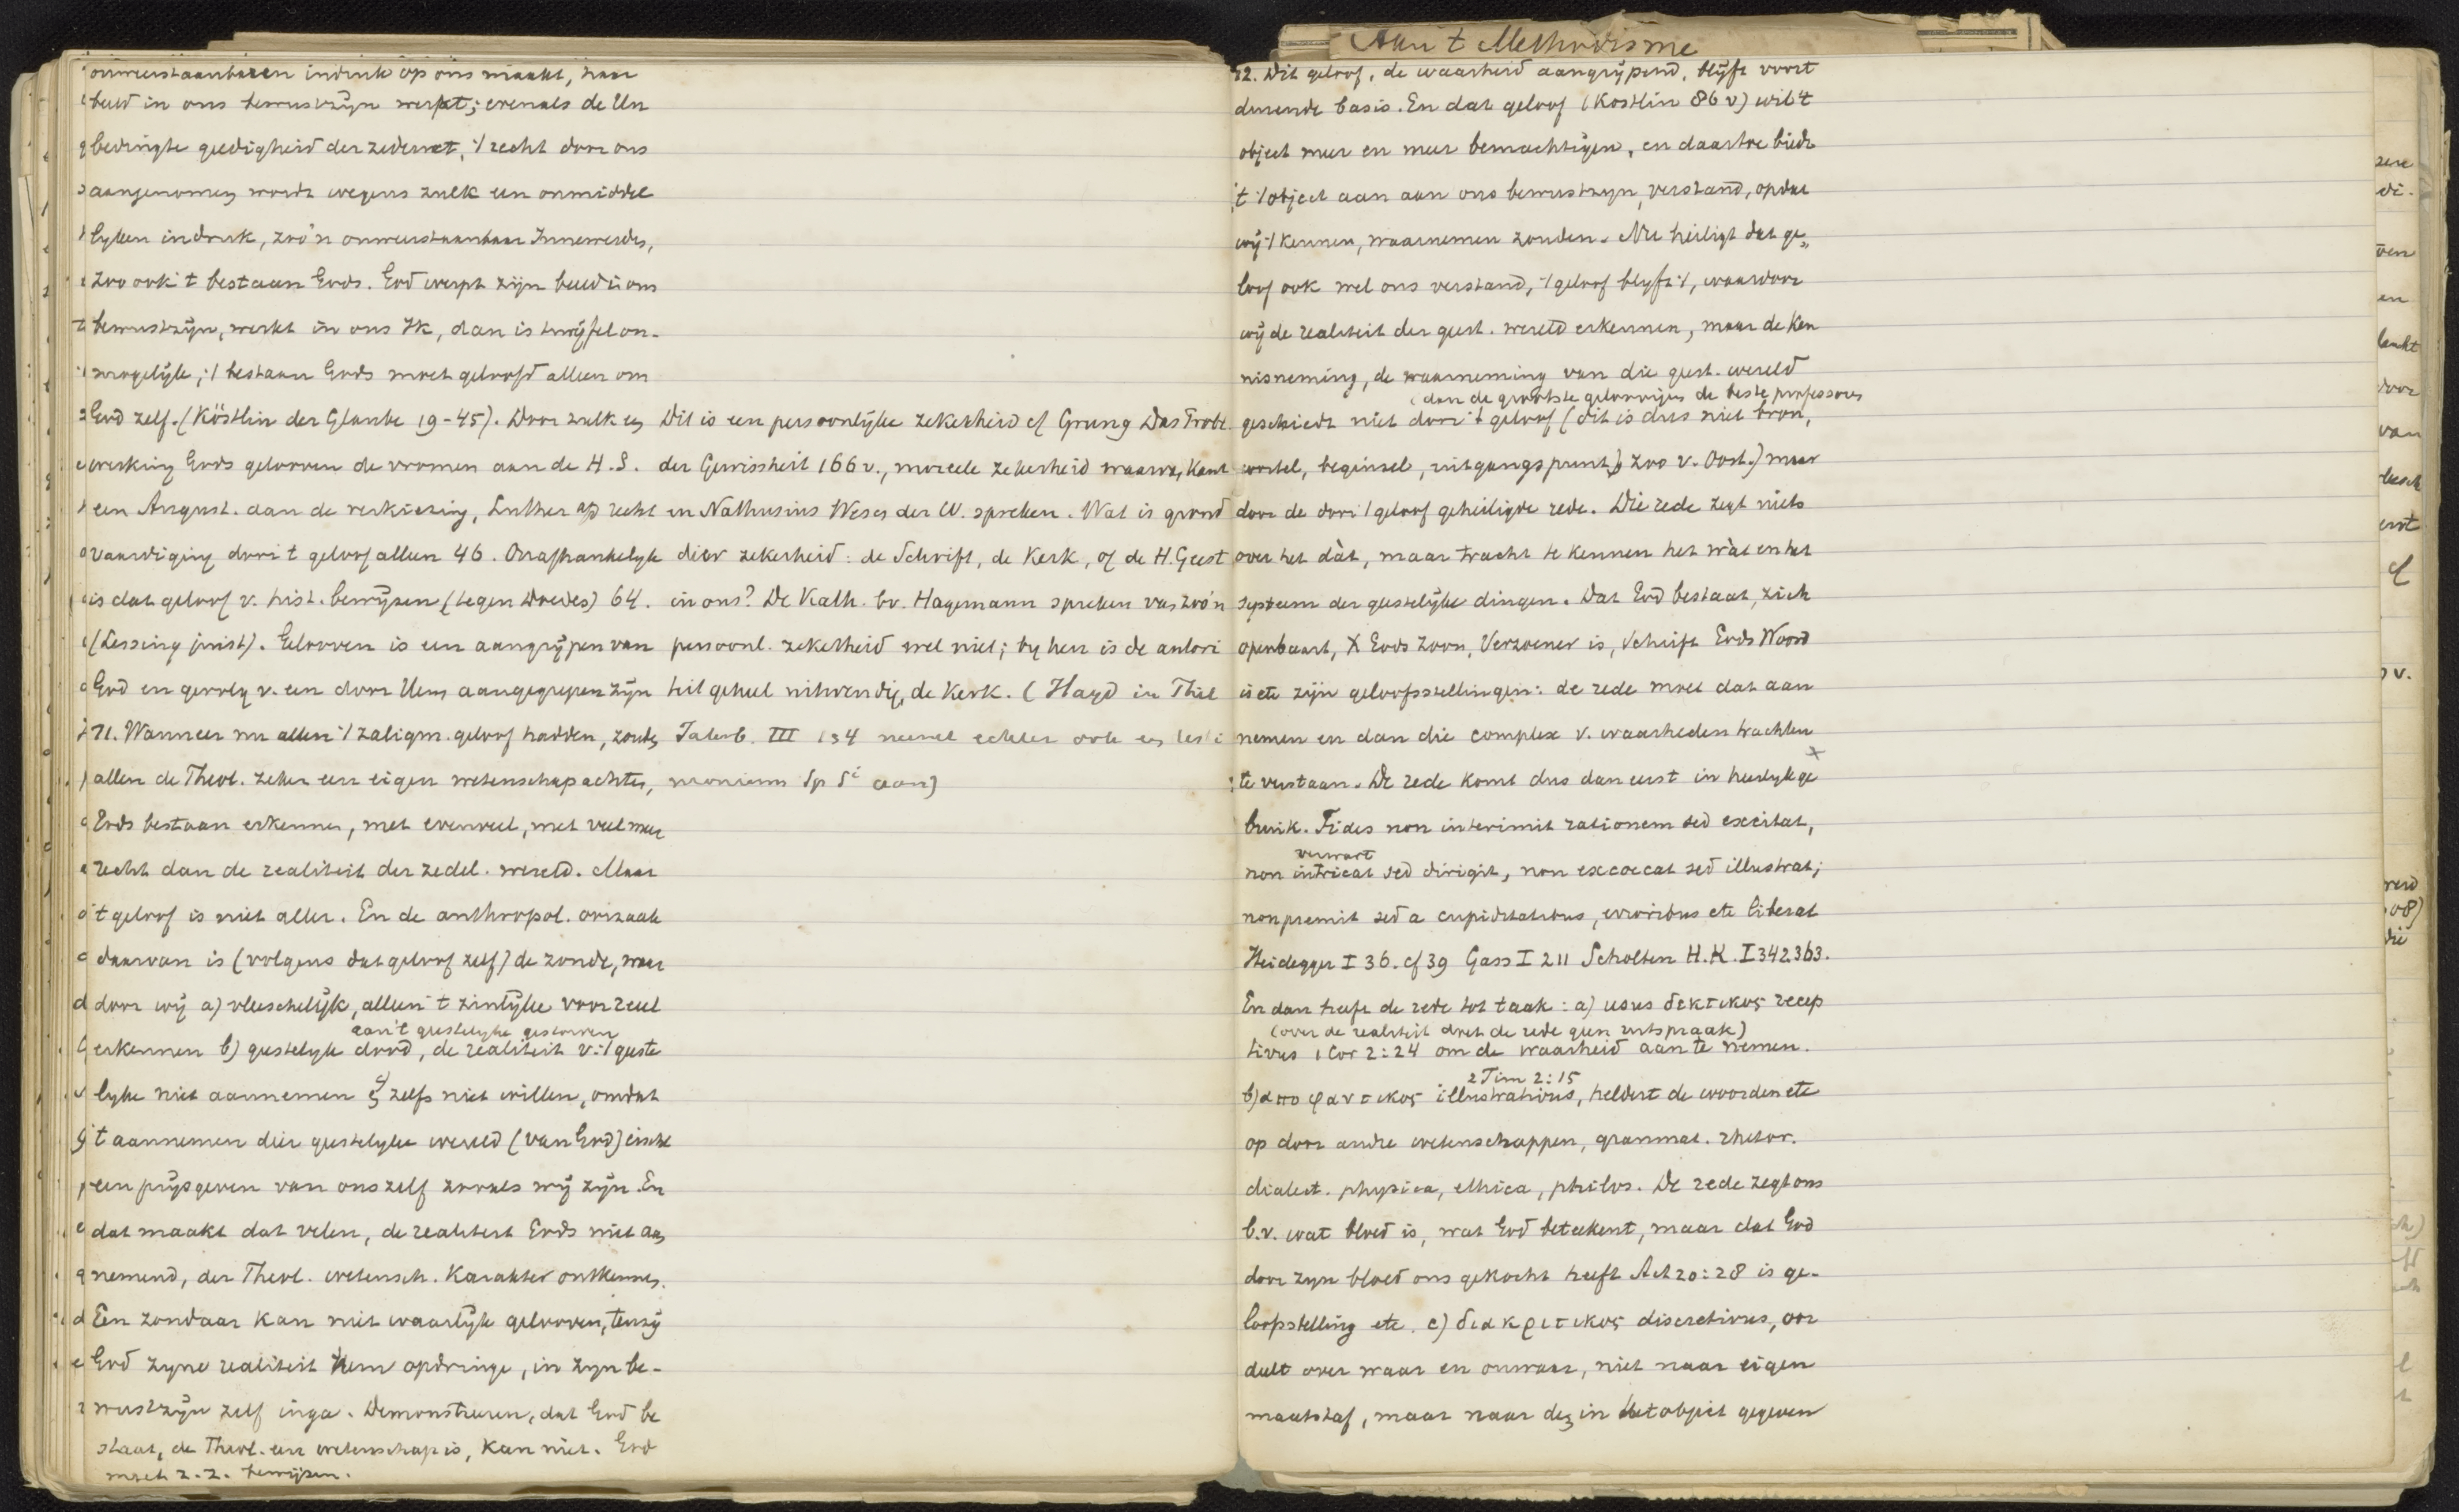 onweerstaanbaren indruk op ons maakt, haar
beeld in ons bewustzijn werpt; evenals de Un
bedingte geldigheid der zedewet, 't recht door ons
aangenomen wordt wegens zulk een onmiddel
lyken indruk, zoo'n onweerstaanbaar Innewerden,
zoo ook 't bestaan Gods. God werpt zijn beeld in ons
bewustzijn, werkt in ons Ik, dan is twijfel on-
mogelijk; 't bestaan Gods moet geloofd alleen om
God zelf. (Köstlin der Glaube 19-45). Door zulk een
werking Gods gelooven de vromen aan de H.S.
een August. aan de verkiezing, Luther op recht
vaardiging door 't geloof alleen 46. Onafhankelyk
is dat geloof v. hist. bewijzen (tegen Doedes) 64.
(Lessing juist). Gelooven is een aangrijpen van
God en gevolg v. een door Hem aangegrepen zijn
71. Wanneer nu allen 't zaligm. geloof hadden, zouden
allen de Theol. zeker een eigen wetenschap achten,
Gods bestaan erkennen, met evenveel, met veel meer
recht dan de realiteit der zedel. wereld. Maar
't geloof is niet aller. En de anthropol. oorzaak
daarvan is (volgens dat geloof zelf) de zonde, waar
door wij a) vleeschelijk, alleen 't zinlijke voor reëel
aan 't geestelyke gestorven
erkennen b) geestelyk dood, de realiteit v. 't geeste
lyke niet aannemen en zelfs niet willen, omdat
't aannemen dier geestelyke wereld (van God) eischt
een prijsgeven van ons zelf zooals wij zijn. En
dat maakt dat velen, de realiteit Gods niet aan
nemend, der Theol. wetensch. Karakter ontkennen.
Een zondaar kan niet waarlijk gelooven, tenzij
God zyne realiteit hem opdringe, in zyn be-
wustzijn zelf inga. Demonstreeren, dat God be
staat, de Theol. een wetenschap is, kan niet. God
moet z.z. bewijzen.
Dit is een persoonlijke zekerheid cf Grung Das Probl.
der Gewissheit 166 v., moreele zekerheid waarvan Kant
en Nathusius Wesen der W. spreken. Wat is grond
dier zekerheid: de Schrift, de Kerk, of de H. Geest
in ons? De Kath. bv. Hagemann spreken van zoo'n
persoonl. zekerheid wel niet; by hen is de autori
teit geheel uitwendig, de Kerk. (Hayd in Theol
Jahrb. III 134 neemt echter ook een testi
monium Sp Si aan)
Aan 't Methodisme
72. Dit geloof, de waarheid aangrijpend, blijft voort
durende basis. En dat geloof (Köstlin 86 v) wil 't
object meer en meer bemachtigen, en daartoe biedt
't 't object aan aan ons bewustzyn, verstand, opdat
wij 't kennen, waarnemen zouden. Nu heiligt dat ge„
loof ook wel ons verstand, 't geloof blyft 't, waardoor
wij de realiteit der geest. wereld erkennen, maar de ken
nisneming, de waarneming van die geest. wereld
(dan de grootste geloovigen de beste professoren
geschiedt niet door 't geloof (dit is dus niet bron,
wortel, beginsel, uitgangspunt) zoo v. Oost.) maar
door de door 't geloof geheiligde rede. Die rede zegt niets
over het dàt, maar tracht te kennen het wàt en het
systeem der geestelijke dingen. Dat God bestaat, zich
openbaart, X Gods Zoon, Verzoener is, Schrift Gods Woord
is etc zijn geloofsstellingen: de rede moet dat aan
nemen en dan die complex v. waarheden trachten
te verstaan. De rede komt dus dan eerst in heerlyk ge
bruik. Fides non interimit rationem sed excitat,
verwart
non intricat sed dirigit, non excoecat sed illustrat;
non premit sed a cupiditatibus, erroribus etc liberat
Heidegger I 36. cf 39 Gass I 211 Scholten H.K. I 342.363.
En dan heeft de rede tot taak: a) usus δεκτικος recep
(over de realiteit doet de rede geen uitspraak)
tivus 1 Cor 2:24 om de waarheid aan te nemen.
2 Tim 2:15
b) αποφαντικος illustrativus, heldert de woorden etc
op door andre wetenschappen, grammat. rhetor.
dialect. physica, ethica, philos. De rede zegt ons
b.v. wat bloed is, wat God beteekent, maar dat God
door zyn bloed ons gekocht heeft Act 20:28 is ge-
loofsstelling etc. c) διακριτικος discretivus, oor
deelt over waar en onwaar, niet naar eigen
maatstaf, maar naar den in het object gegeven